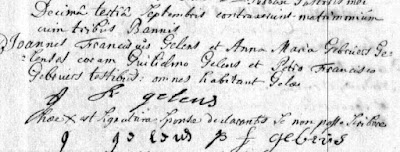 Decima tertia Septembris contraxerunt matrimonium
cum tribus Bannis
Joannes Franciscus Gelens et Anna Maria Gebruers
coram Guilielmo Gelens et Petro Francisco
Gebruers testibus: omnes habitant Gelae
J F gelens
haec X est signatura sponsae declarantis se non posse scribere
g gelens p f gebrúrs